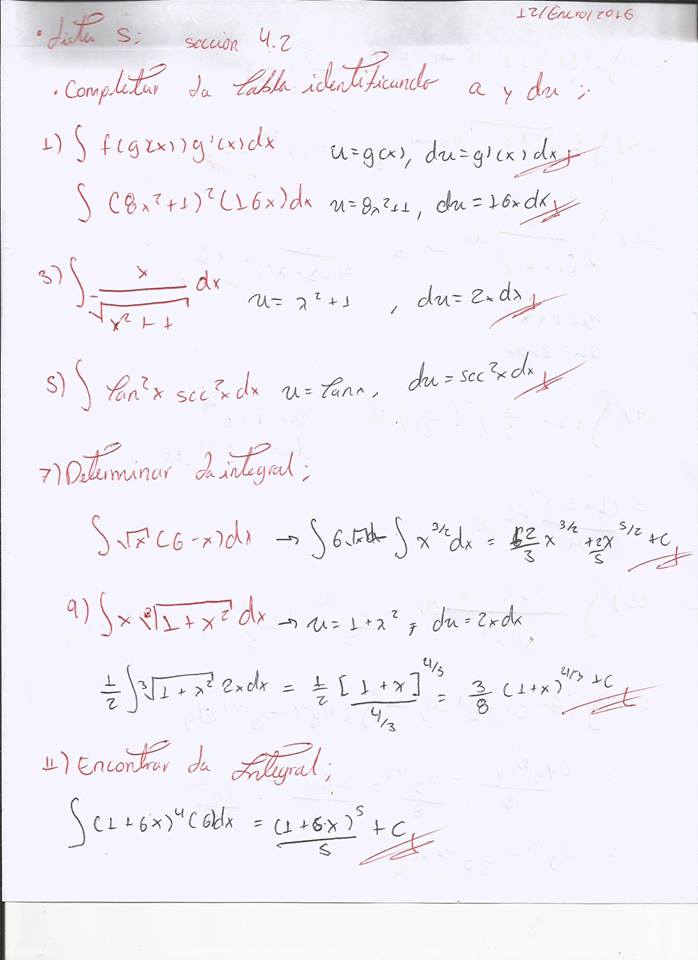 12/Enero/2016
• Lista 5: sección 4.2
• Completar la tabla identificando u y du;
1) ∫ f(g(x)) g'(x) dx u = g(x), du = g'(x) dx
∫ (8x²+1)² (16x) dx u = 8x²+1, du = 16x dx
3) ∫ x/√(x²+1) dx u = x²+1, du = 2x dx
5) ∫ Tan²x sec²x dx u = Tanx, du = sec²x dx
7) Determinar la integral;
∫ √x (6-x) dx → ∫ 6√x dx - ∫ x^(3/2) dx = 12/3 x^(3/2) + 2x/5^(5/2) + C
9) ∫ x ∛(1+x²) dx → u = 1+x²; du = 2x dx
1/2 ∫ ∛(1+x²) 2x dx = 1/2 [1+x]^(4/3)/(4/3) = 3/8 (1+x)^(4/3) + C
11) Encontrar la Integral;
∫ (1+6x)⁴ (6) dx = (1+6x)⁵/5 + C